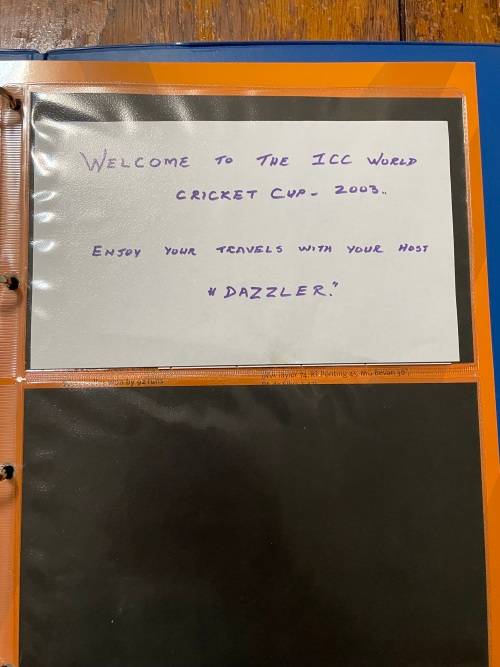 WELCOME TO THE ICC WORLD
CRICKET CUP - 2003..
ENJOY YOUR TRAVELS WITH YOUR HOST
"DAZZLER."
won by 92 runs
Ponting 45, MG Bevan